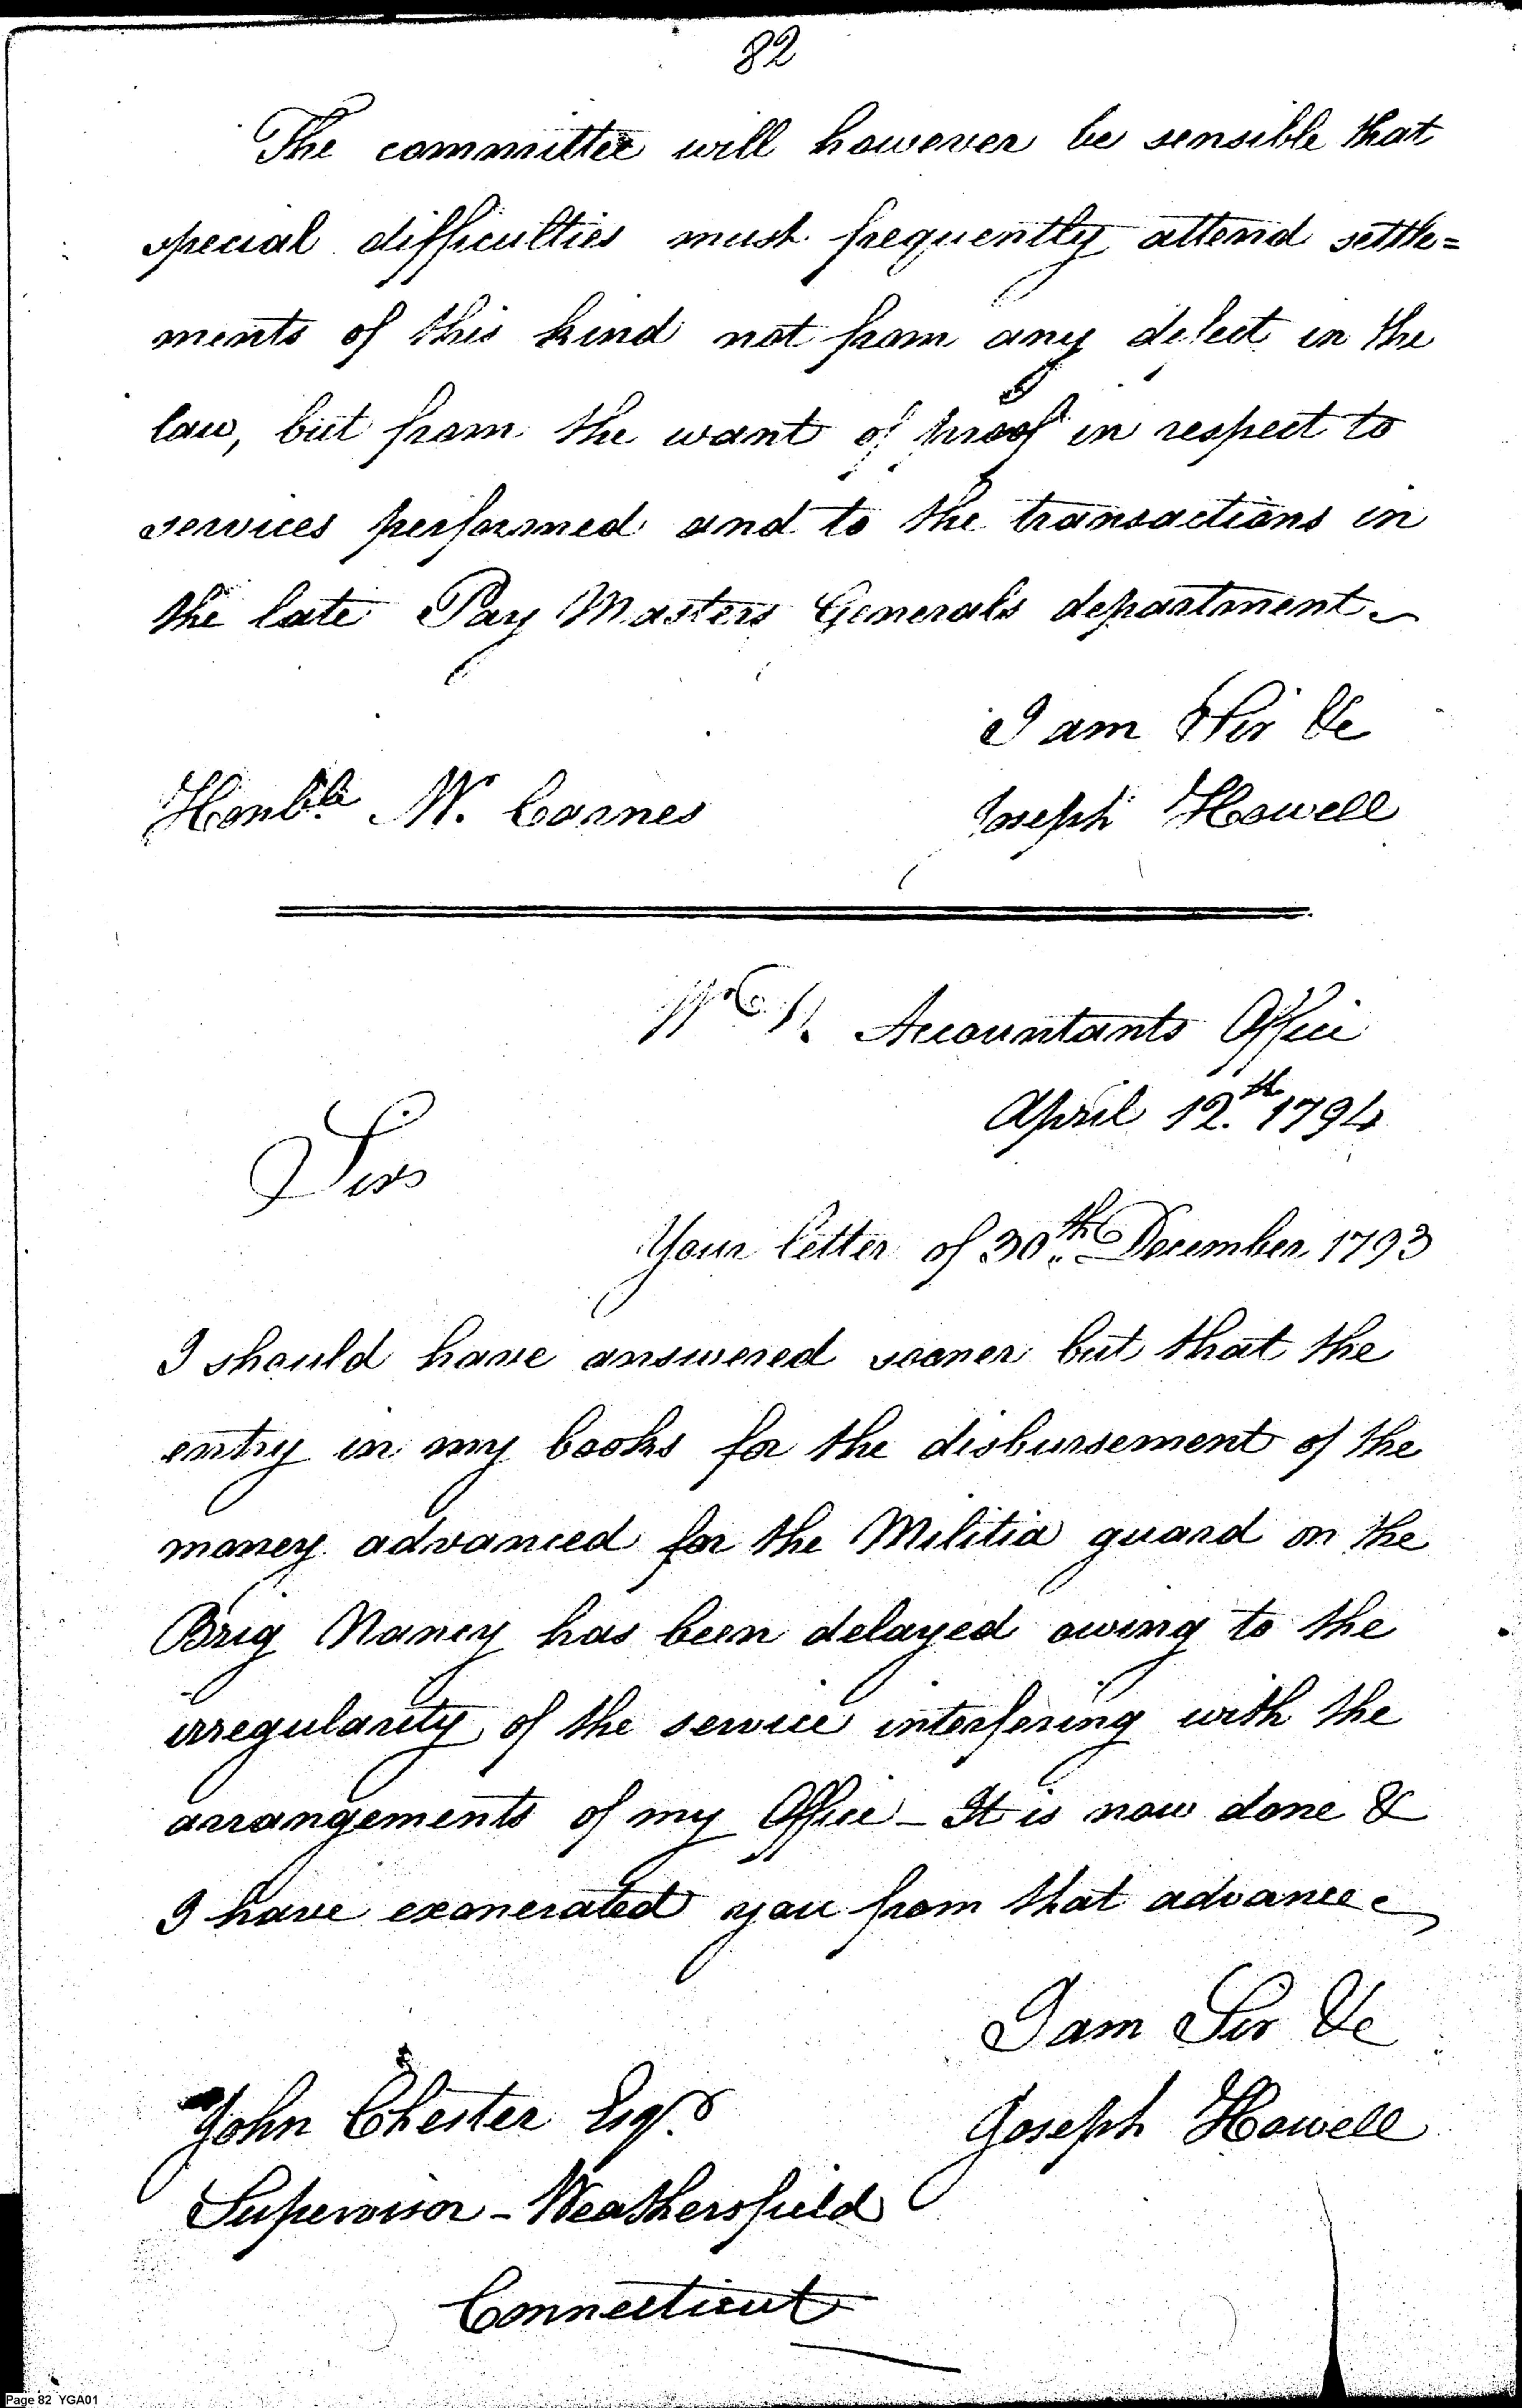 82
The committee will however be sensible that
special difficulties must frequently attend settle=
ments of this kind not from any defect in the
law, but from the want of proof in respect to
services performed and to the transactions in
the late Pay Masters Generals department
I am Sir &c
Honbl.le Mr. Carnes
Joseph Howell
Accountants Office
April 12.th 1794
Sir
Your letter of 30.th December 1793
I should have answered sooner but that the
entry in my books for the disbursement of the
money advanced for the Militia guard on the
Brig Nancy has been delayed owing to the
irregularity of the service interfering with the
arrangements of my Office - It is now done &
I have exonerated you from that advance
I am Sir &c
John Chester Esqr.
Joseph Howell
Supervisor - Weathersfield
Connecticut
Page 82 YGA01